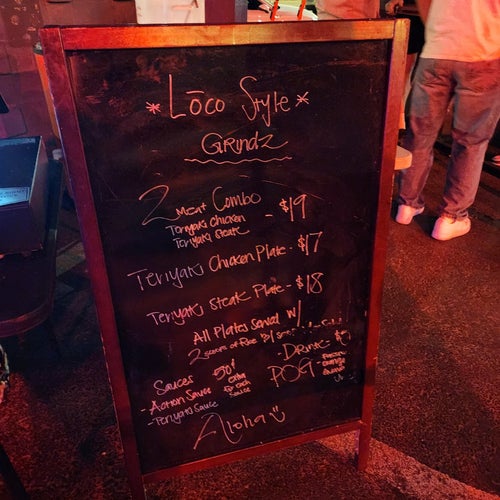 *Lōco Style*
Grindz
2 Meat Combo - $19
Teriyaki Chicken
Teriyaki Steak
Teriyaki Chicken Plate - $17
Teriyaki Steak Plate - $18
All Plates Served w/
2 scoops of Rice
Sauces 50¢
extra for each sauce
- Action Sauce
- Teriyaki Sauce
- Drinks
POG - Passion orange guava
Aloha